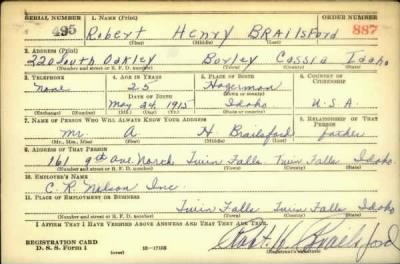 SERIAL NUMBER 1. NAME (Print) ORDER NUMBER
495 Robert Henry Brailsford 887
(First) (Middle) (Last)
2. ADDRESS (Print)
220 South Oakley Burley Cassia Idaho
(Number and street or R. F. D. number) (Town) (County) (State)
3. TELEPHONE 4. AGE IN YEARS 5. PLACE OF BIRTH 6. COUNTRY OF CITIZENSHIP
None 25 Hagerman
DATE OF BIRTH
May 24, 1915 Idaho U.S.A.
(Mo.) (Day) (Yr.)
7. NAME OF PERSON WHO WILL ALWAYS KNOW YOUR ADDRESS 8. RELATIONSHIP OF THAT PERSON
Mr. A H. Brailsford father
(Mr., Mrs., Miss) (First) (Middle) (Last)
9. ADDRESS OF THAT PERSON
161 9th Ave. North Twin Falls Twin Falls Idaho
(Number and street or R. F. D. number) (Town) (County) (State)
10. EMPLOYER'S NAME
C. R. Nelson Inc.
11. PLACE OF EMPLOYMENT OR BUSINESS
Twin Falls Twin Falls Idaho
(Number and street or R. F. D. number) (Town) (County) (State)
I AFFIRM THAT I HAVE VERIFIED ABOVE ANSWERS AND THAT THEY ARE TRUE.
REGISTRATION CARD
D. S. S. Form 1 (over) Robt. H. Brailsford